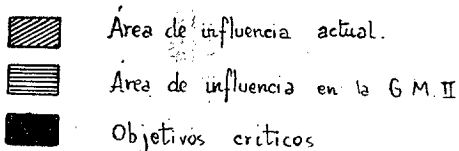 Área de influencia actual.
Área de influencia en la G M. II
Objetivos criticos